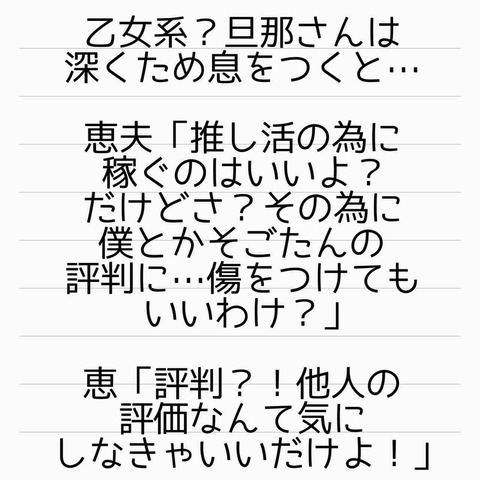 乙女系？旦那さんは
深くため息をつくと…
恵夫「推し活の為に
稼ぐのはいいよ？
だけどさ？その為に
僕とかそごたんの
評判に…傷をつけても
いいわけ？」
恵「評判？！他人の
評価なんて気に
しなきゃいいだけよ！」